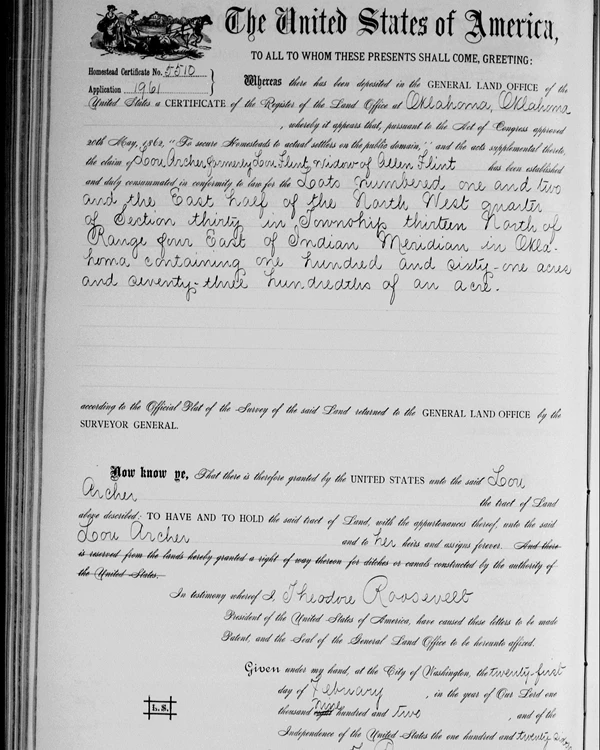 The United States of America,
TO ALL TO WHOM THESE PRESENTS SHALL COME, GREETING:
Homestead Certificate No. 5510
Application 1961
Whereas there has been deposited in the GENERAL LAND OFFICE of the
United States a CERTIFICATE of the Register of the Land Office at Oklahoma, Oklahoma
, whereby it appears that, pursuant to the Act of Congress approved
20th May, 1862, "To secure Homesteads to actual settlers on the public domain," and the acts supplemental thereto,
the claim of Lou Archer, formerly Lou Flint, widow of Allen Flint has been established
and duly consummated in conformity to law for the Lots numbered one and two
and the East half of the North West quarter
of Section thirty in Township thirteen North of
Range four East of Indian Meridian in Okla-
homa containing one hundred and sixty-one acres
and seventy-three hundredths of an acre.
according to the Official Plat of the Survey of the said Land returned to the GENERAL LAND OFFICE by the
SURVEYOR GENERAL.
Now know ye, That there is therefore granted by the UNITED STATES unto the said Lou
Archer the tract of Land
above described: TO HAVE AND TO HOLD the said tract of Land, with the appurtenances thereof, unto the said
Lou Archer and to her heirs and assigns forever. And there
is reserved from the lands hereby granted a right of way thereon for ditches or canals constructed by the authority of
the United States.
In testimony whereof I, Theodore Roosevelt
President of the United States of America, have caused these letters to be made
Patent, and the Seal of the General Land Office to be hereunto affixed.
Given under my hand, at the City of Washington, the twenty-first
day of February , in the year of Our Lord one
thousand nine hundred and two , and of the
L.S.
Independence of the United States the one hundred and twenty-sixth